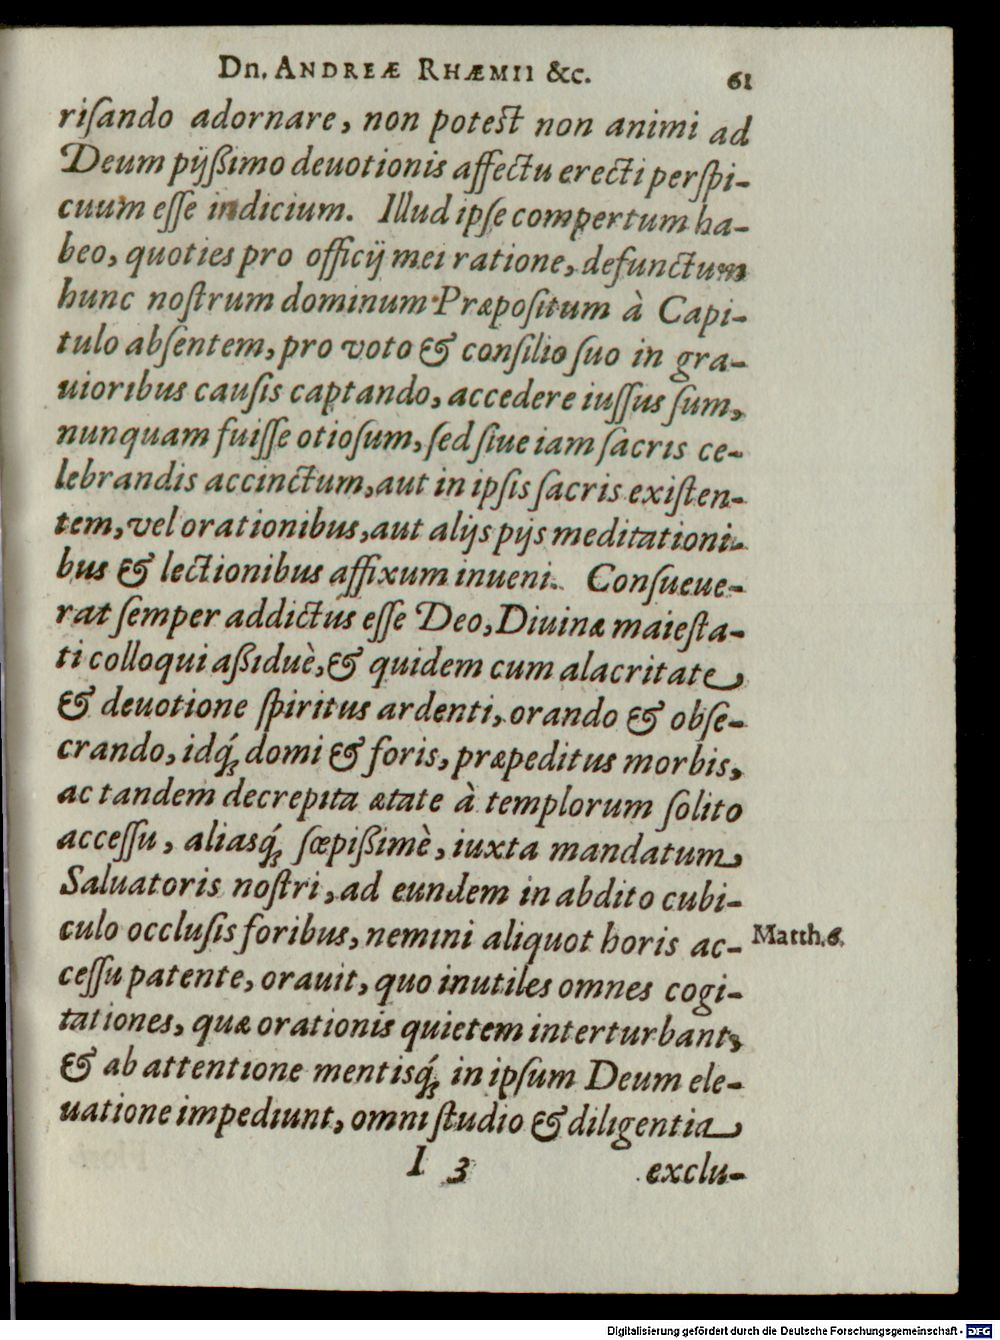 Dn. ANDREÆ RHÆMII &c. 61
riſando adornare, non poteſt non animi ad
Deum pijßimo deuotionis affectu erecti perſpi-
cuum eſſe indicium. Illud ipſe compertum ha-
beo, quoties pro officij mei ratione, defunctum
hunc noſtrum dominum Præpoſitum à Capi-
tulo abſentem, pro voto & conſilio ſuo in gra-
uioribus cauſis captando, accedere iuſſus ſum,
nunquam fuiſſe otioſum, ſed ſiue iam ſacris ce-
lebrandis accinctum, aut in ipſis ſacris exiſten-
tem, vel orationibus, aut alijs pijs meditationi-
bus & lectionibus affixum inueni. Conſueue-
rat ſemper addictus eſſe Deo, Diuinæ maieſta-
ti colloqui aßiduè, & quidem cum alacritate
& deuotione ſpiritus ardenti, orando & obſe-
crando, idq́; domi & foris, præpeditus morbis,
ac tandem decrepita ætate à templorum ſolito
acceſſu, aliasq́; ſœpißimè, iuxta mandatum
Saluatoris noſtri, ad eundem in abdito cubi-
culo occluſis foribus, nemini aliquot horis ac- Matth. 6.
ceſſu patente, orauit, quo inutiles omnes cogi-
tationes, quæ orationis quietem interturbant,
& ab attentione mentisq́; in ipſum Deum ele-
uatione impediunt, omni ſtudio & diligentia
I 3 exclu-
Digitalisierung gefördert durch die Deutsche Forschungsgemeinschaft - DFG